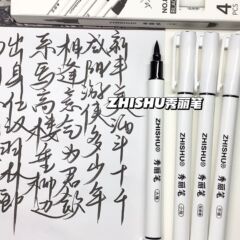 新丰美酒斗十千
咸阳游侠多少年
相逢意气为君饮
系马高楼垂柳边
出身仕汉羽林郎
ZHISHU秀丽笔
ZHISHU® 秀丽笔
ZHISHU® 秀丽笔
ZHISHU® 秀丽笔
ZHISHU® 秀丽笔
4
PCS